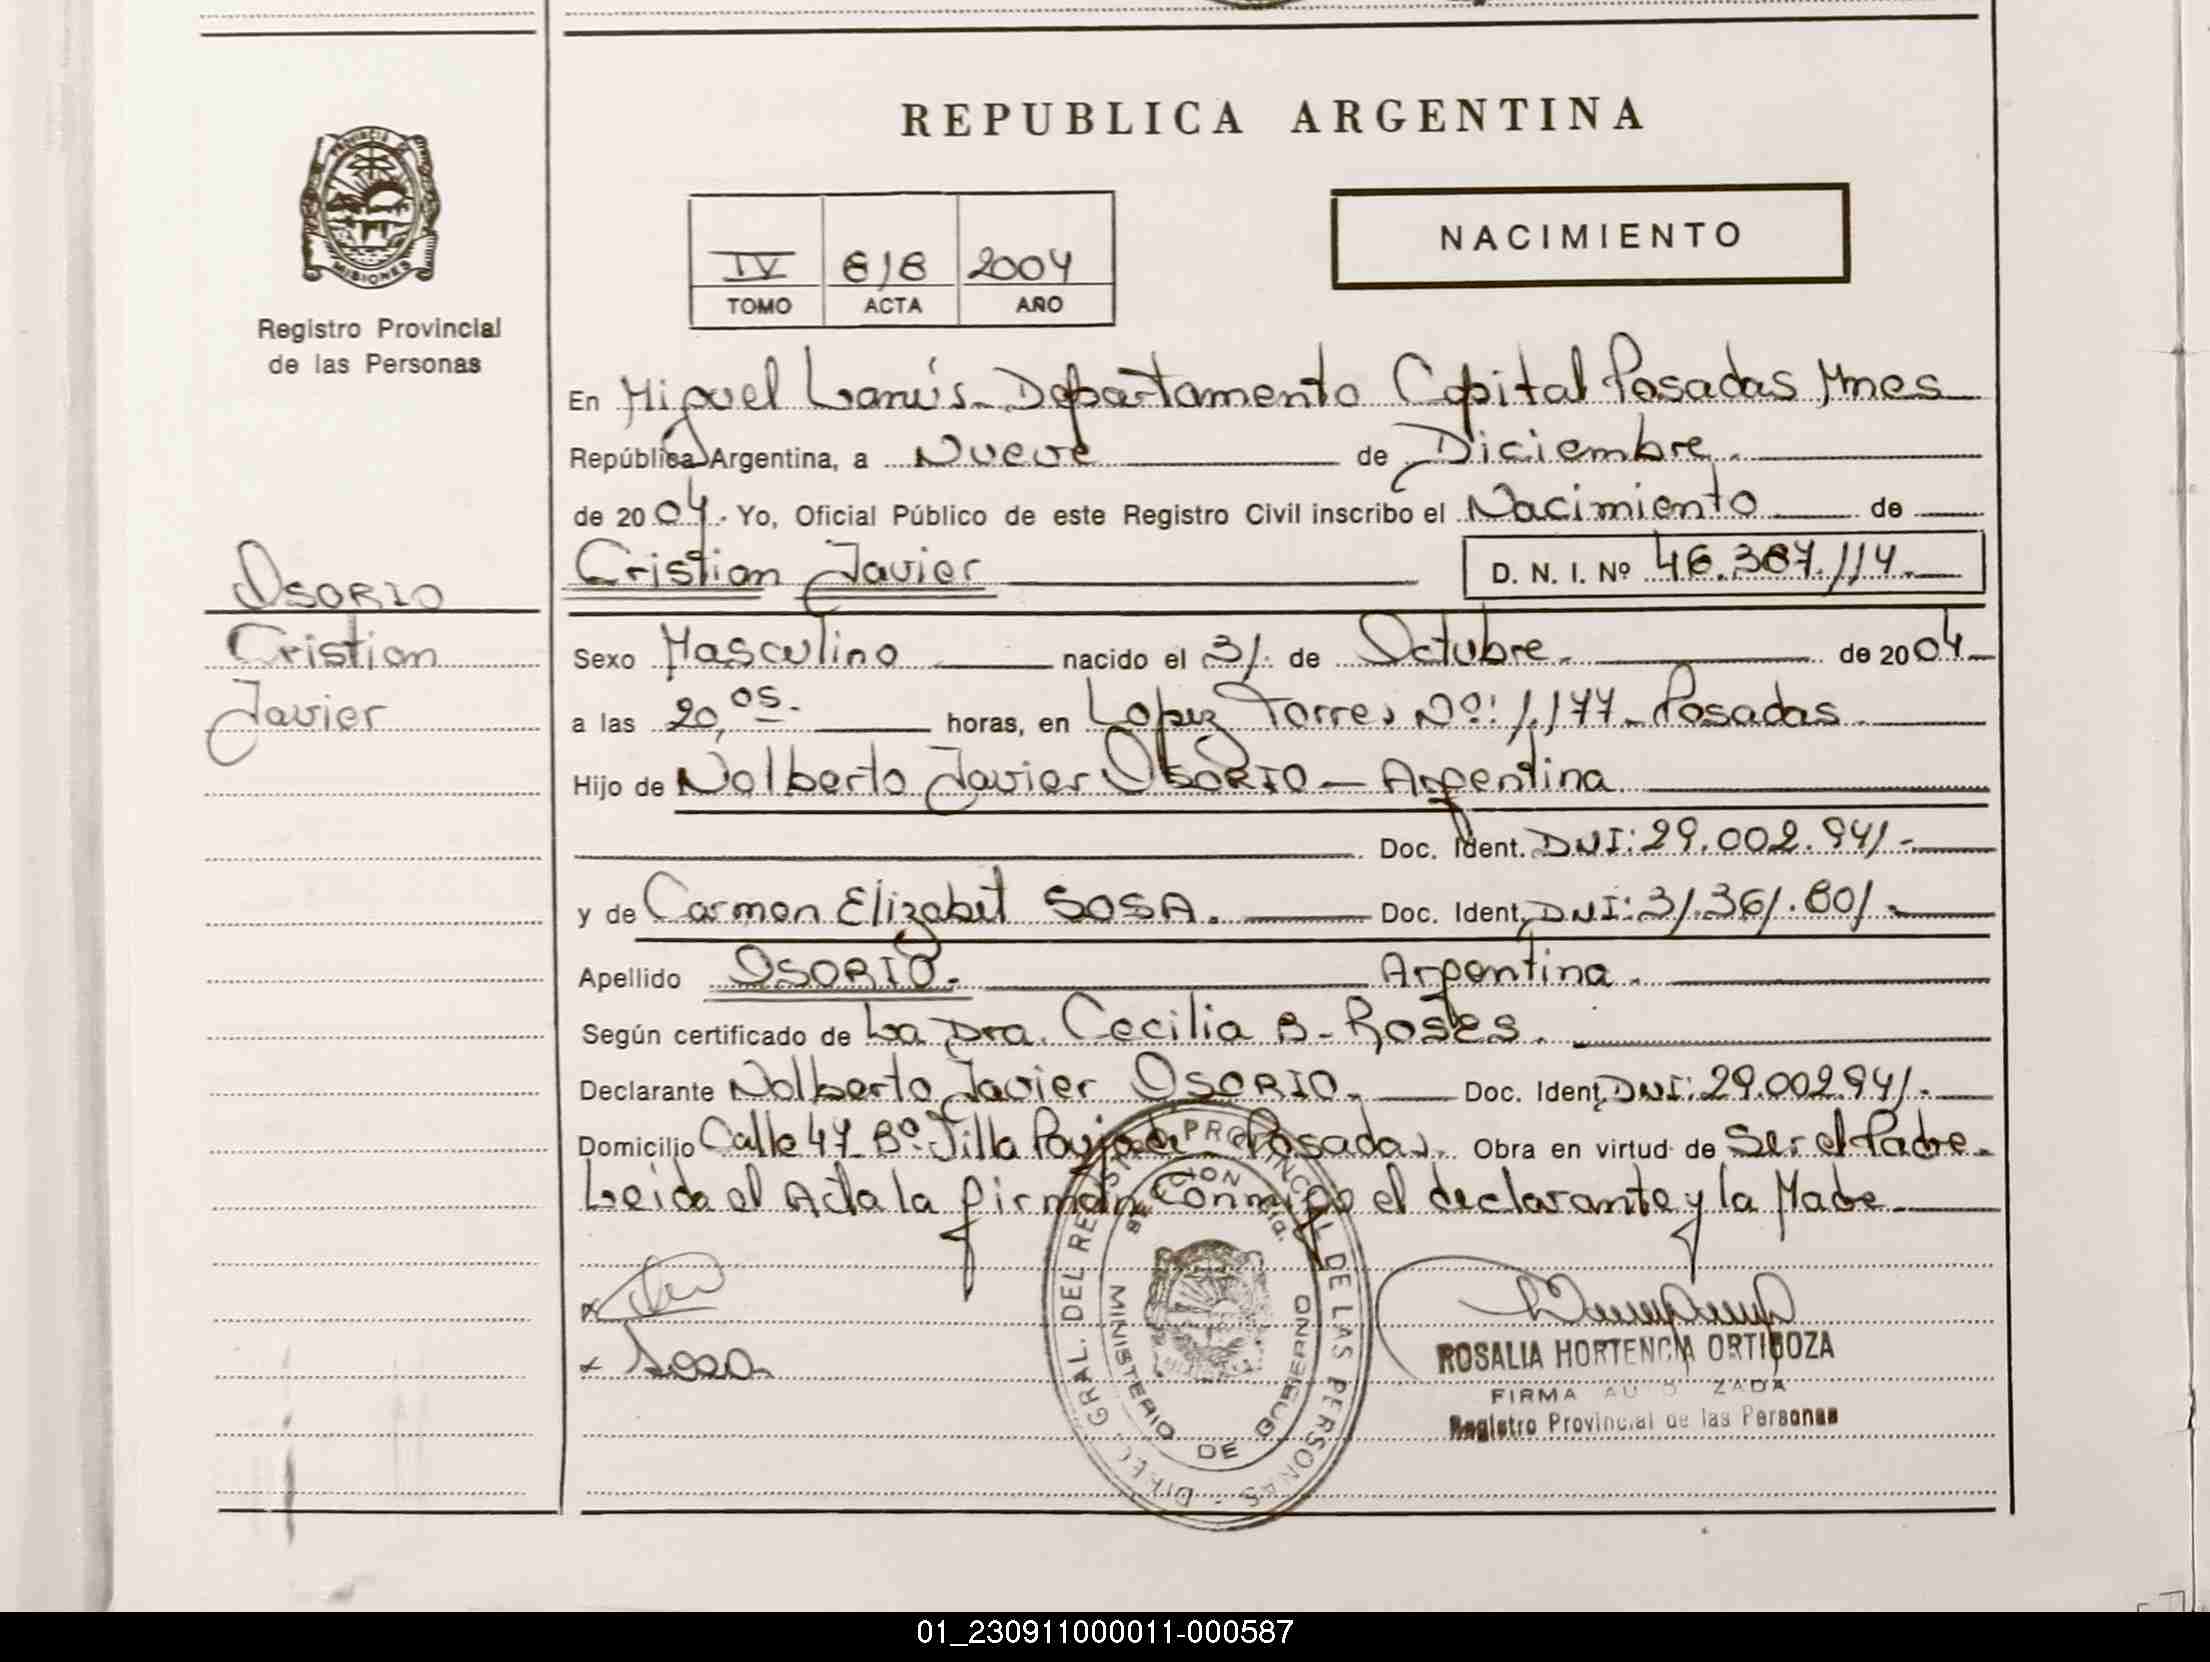 REPUBLICA ARGENTINA
PROVINCIA DE
MISIONES
Registro Provincial
de las Personas
NACIMIENTO
IV 616 2004
TOMO ACTA AÑO
En Miguel Lanús - Departamento Capital Posadas Mnes
República Argentina, a Nueve de Diciembre.
de 2004. Yo, Oficial Público de este Registro Civil inscribo el Nacimiento de
Cristian Javier D. N. I. Nº 46.387.114.
OSORIO
Cristian
Javier
Sexo Masculino nacido el 31. de Octubre. de 2004
a las 20,05. horas, en Lopez Torres Nº: 1.177 - Posadas.
Hijo de Nolberto Javier OSORIO - Argentina
Doc. Ident. DNI: 29.002.941.-
y de Carmen Elizabet SOSA. Doc. Ident. DNI: 31.361.801.-
Apellido OSORIO. Argentina.
Según certificado de La Dra. Cecilia B. Roses.
Declarante Nolberto Javier OSORIO. Doc. Ident. DNI: 29.002.941.-
Domicilio Calle 47 Bº. Villa Posadas. Obra en virtud de Ser el Padre.
Leida el Acta la firman Conmigo el declarante y la Madre
x
x Sosa
ROSALIA HORTENCIA ORTIGOZA
FIRMA AUTORIZADA
Registro Provincial de las Personas
DIREC. GRAL. DEL REGISTRO PROVINCIAL DE LAS PERSONAS
MINISTERIO DE GOBIERNO
01_230911000011-000587